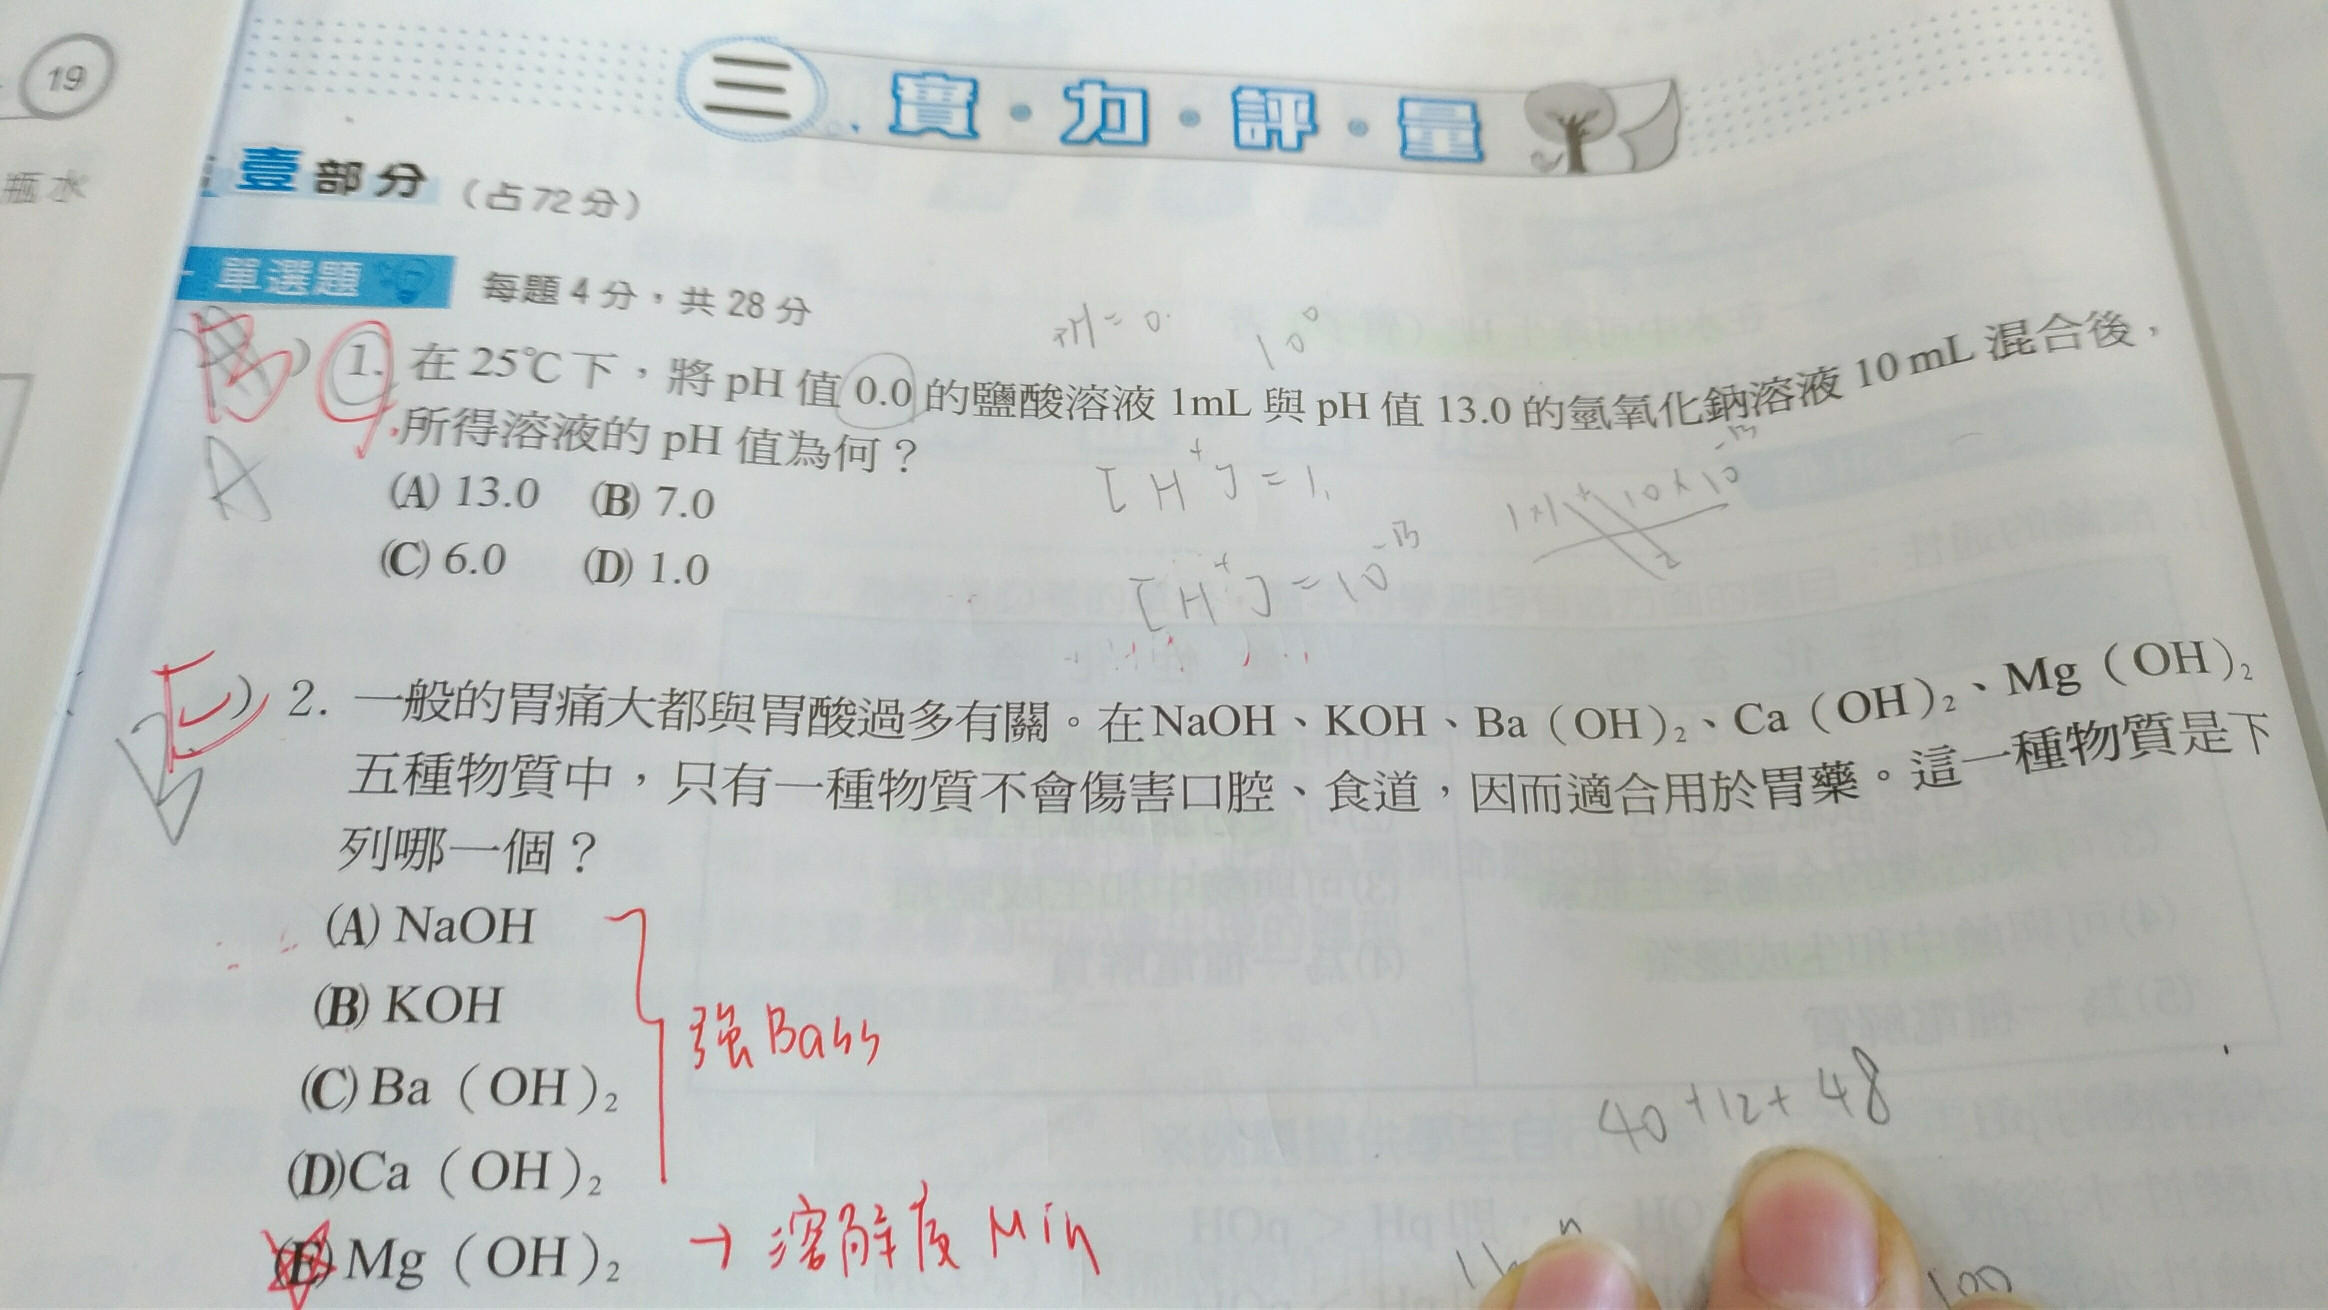 19
瓶水
三、實·力·評·量
壹部分（占72分）
單選題 每題4分，共28分
pH = 0.
10⁰
B
1. 在25℃下，將pH值0.0的鹽酸溶液1mL與pH值13.0的氫氧化鈉溶液10 mL混合後，
所得溶液的pH值為何？
A
[H⁺] = 1.
1×1+10×10⁻¹³
2
(A) 13.0 (B) 7.0
(C) 6.0 (D) 1.0
[H⁺] = 10⁻¹³
E
2. 一般的胃痛大都與胃酸過多有關。在NaOH、KOH、Ba（OH）₂、Ca（OH）₂、Mg（OH）₂
五種物質中，只有一種物質不會傷害口腔、食道，因而適合用於胃藥。這一種物質是下
列哪一個？
(A) NaOH
(B) KOH
強Bass
(C) Ba（OH）₂
40+12+48
(D)Ca（OH）₂
(E) Mg（OH）₂ → 溶解度 Min
100